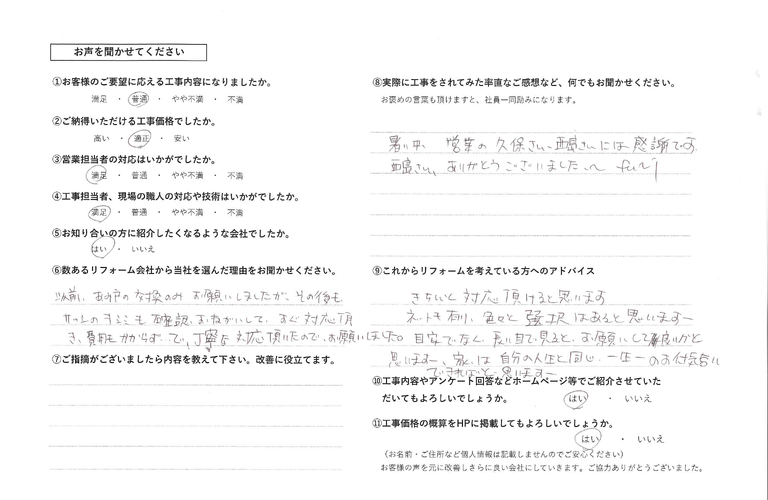 お声を聞かせてください
①お客様のご要望に応える工事内容になりましたか。
満足 ・ 普通 ・ やや不満 ・ 不満
②ご納得いただける工事価格でしたか。
高い ・ 適正 ・ 安い
③営業担当者の対応はいかがでしたか。
満足 ・ 普通 ・ やや不満 ・ 不満
④工事担当者、現場の職人の対応や技術はいかがでしたか。
満足 ・ 普通 ・ やや不満 ・ 不満
⑤お知り合いの方に紹介したくなるような会社でしたか。
はい ・ いいえ
⑥数あるリフォーム会社から当社を選んだ理由をお聞かせください。
以前、お風呂の交換のみ お願いしましたが、その後も
確認おねがいして、すぐ対応頂
き、費用もかからず、で、丁寧な対応頂いたので、お願いしました。
⑦ご指摘がございましたら内容を教えて下さい。改善に役立てます。
⑧実際に工事をされてみた率直なご感想など、何でもお聞かせください。
お褒めの言葉も頂けますと、社員一同励みになります。
暑い中、営業の久保さん、西嶋さんには感謝です。
西嶋さん、ありがとうございました
⑨これからリフォームを考えている方へのアドバイス
きちんと対応頂けると思います
ネットも有り、色々と選択はあると思います
目安でなく、長い目で見ると、お願いして良いかと
思います。家は自分の人生と同じ、一生一のお付合い
できればと思います
⑩工事内容やアンケート回答などホームページ等でご紹介させていた
だいてもよろしいでしょうか。 はい ・ いいえ
⑪工事価格の概算をHPに掲載してもよろしいでしょうか。
はい ・ いいえ
（お名前・ご住所など個人情報は記載しませんのでご安心ください）
お客様の声を元に改善しさらに良い会社にしていきます。ご協力ありがとうございました。